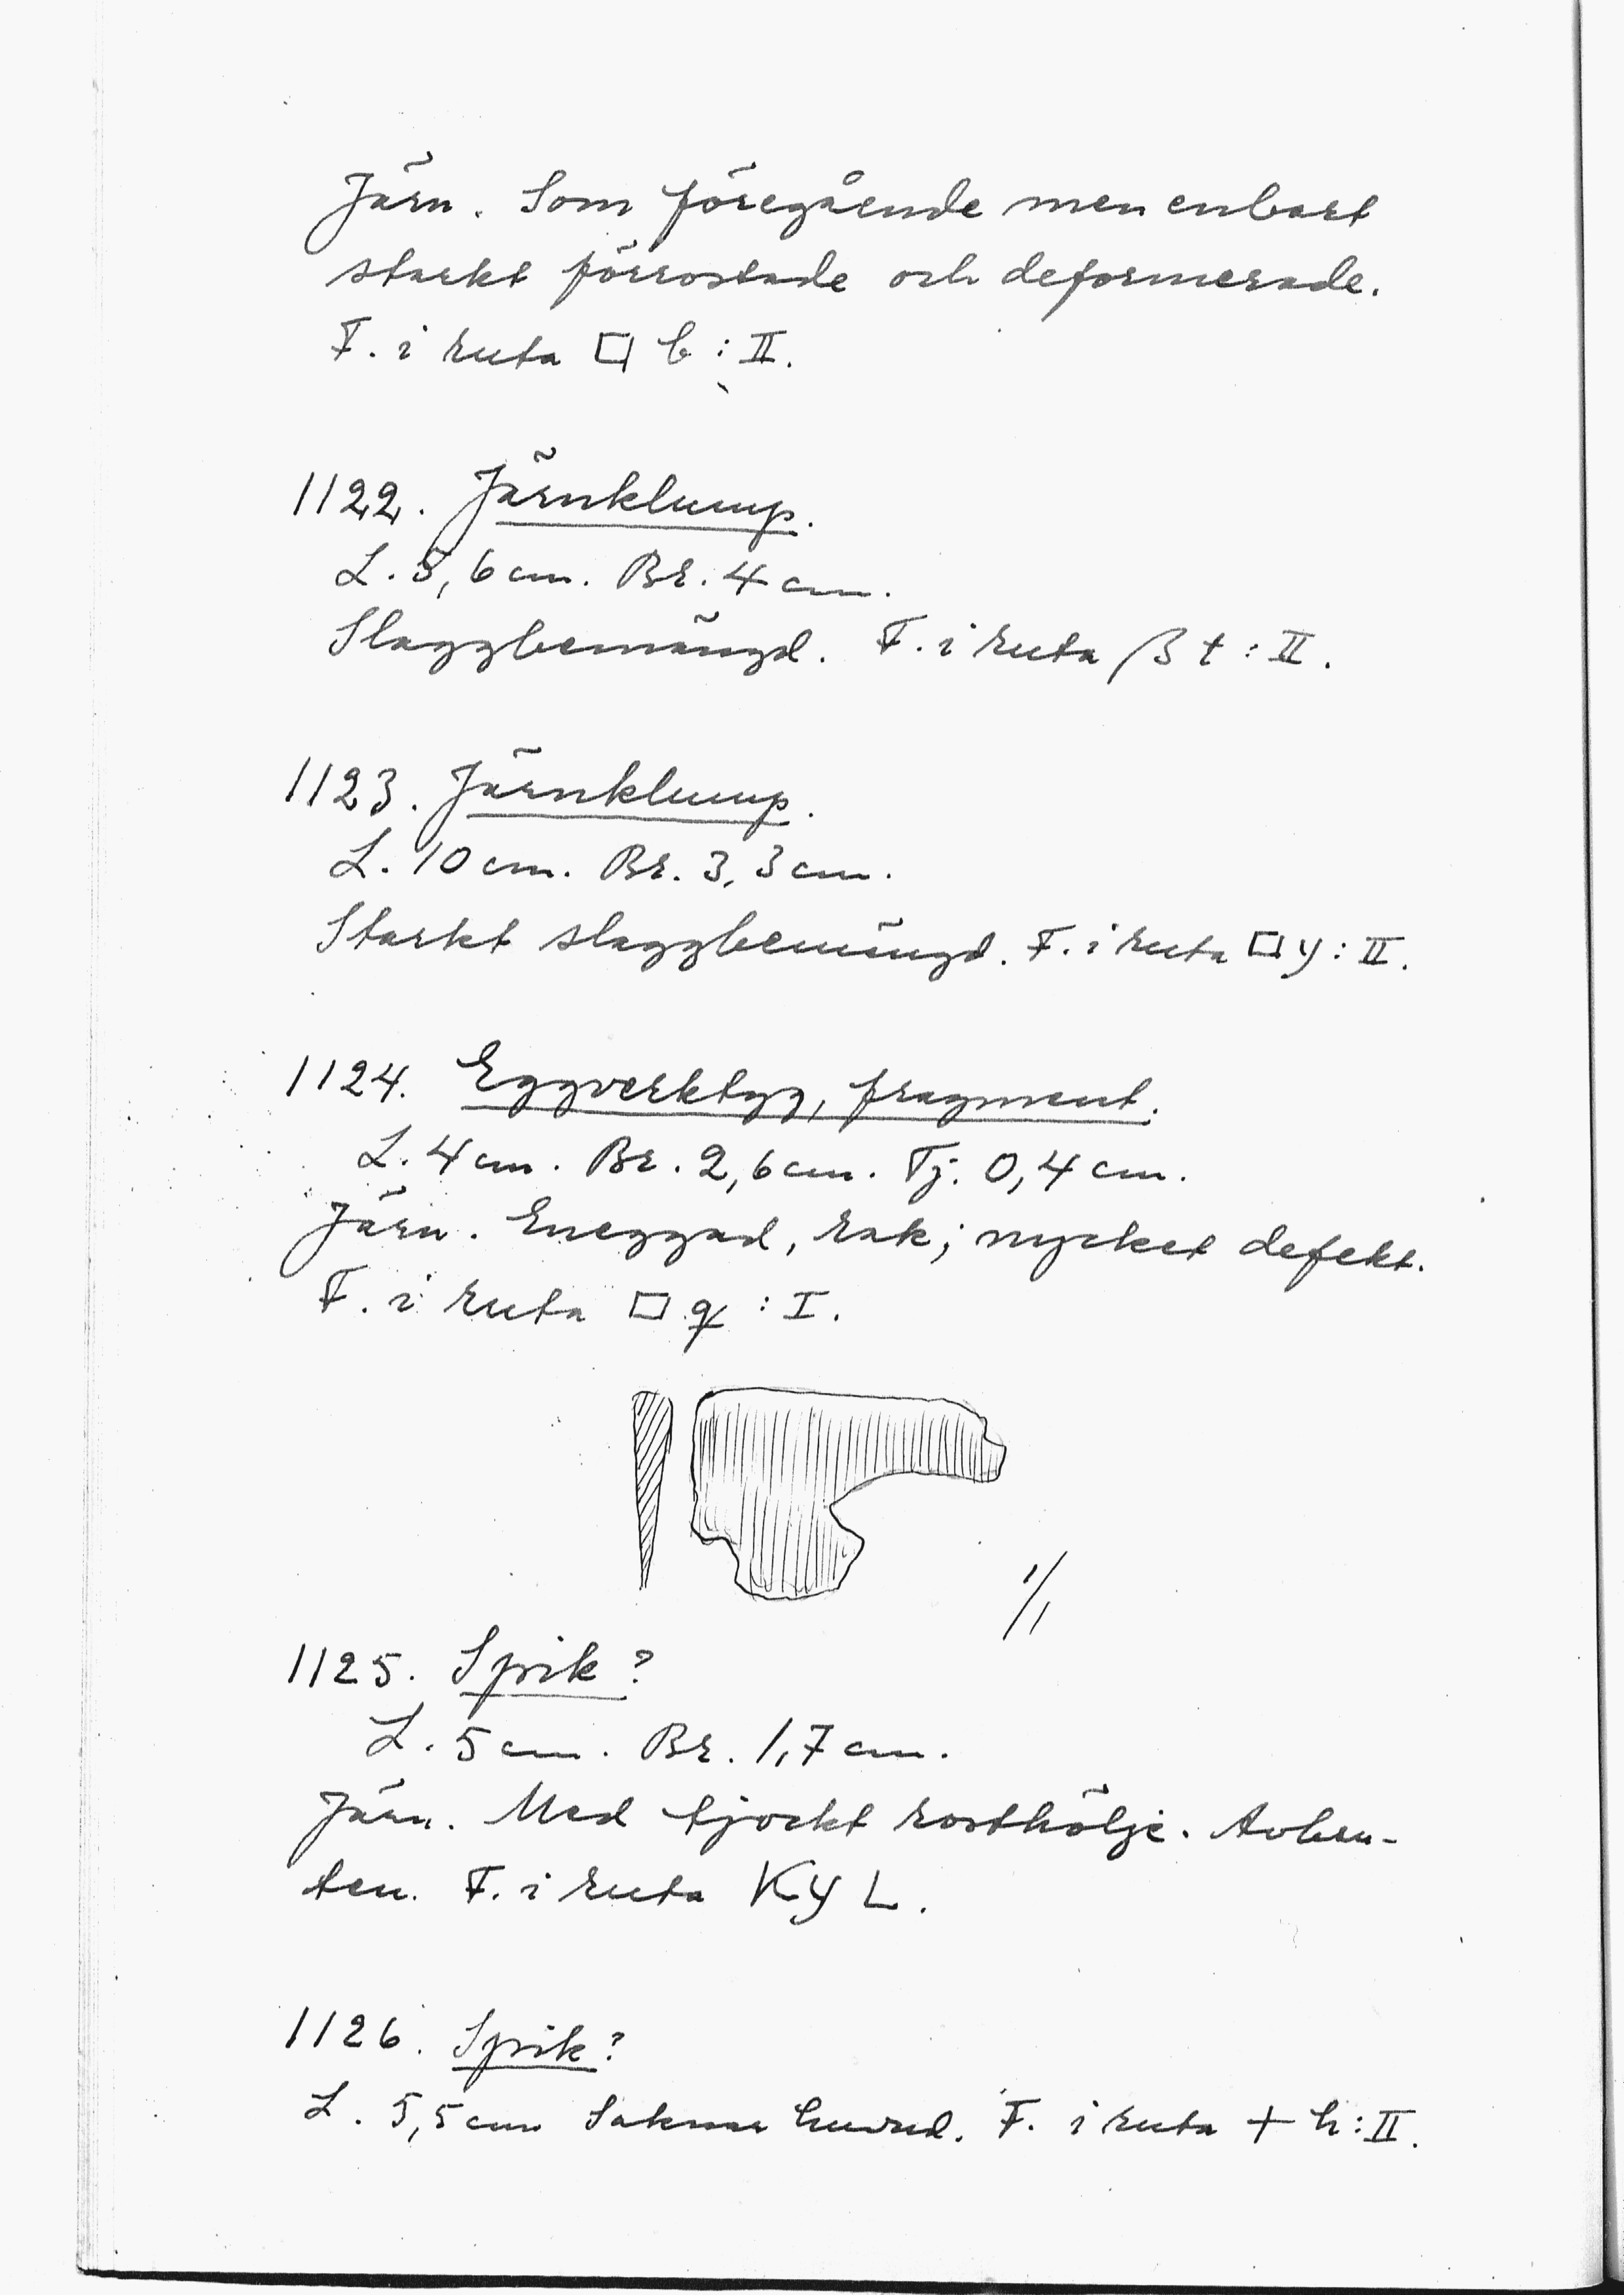 Järn. Som föregående men enbart
starkt förrostade och deformerade.
F. i ruta □ b : II.
1122. Järnklump.
L. 5,6 cm. Br. 4 cm.
Slaggbemängd. F. i ruta β t : II.
1123. Järnklump.
L. 10 cm. Br. 3,3 cm.
Starkt slaggbemängd. F. i ruta □ y : II.
1124. Eggverktyg, fragment.
L. 4 cm. Br. 2,6 cm. Tj. 0,4 cm.
Järn. Eneggad, rak; mycket defekt.
F. i ruta □ q : I.
1/1
1125. Spik?
L. 5 cm. Br. 1,7 cm.
Järn. Med tjockt rosthölje. Avbru-
ten. F. i ruta K y L.
1126. Spik?
L. 5,5 cm Saknar huvud. F. i ruta + h : II.